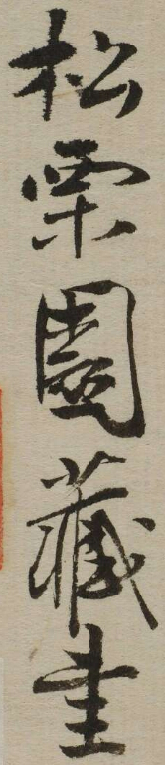 松栗園藏書